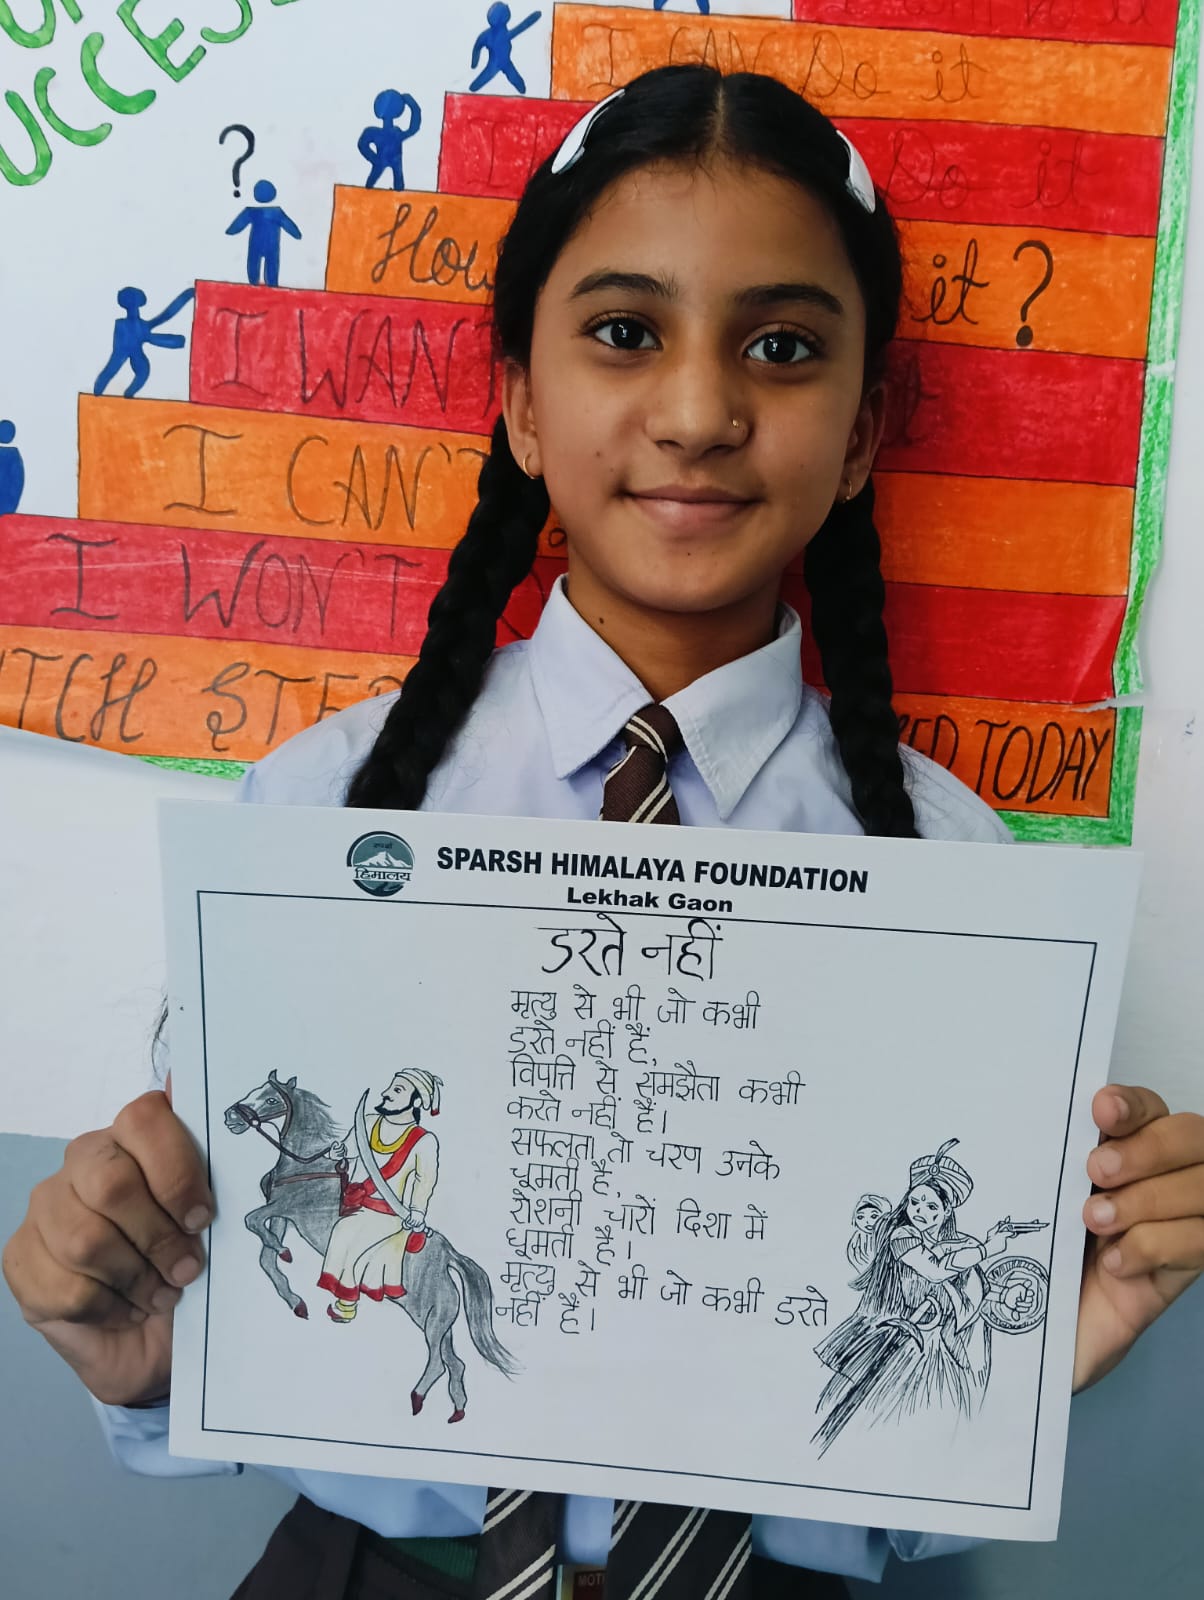 UCCES
I CAN Do it
Do it
How it ?
?
I WANT
I CAN'T
I WON'T
TCH STEP TODAY
हिमालय
SPARSH HIMALAYA FOUNDATION
Lekhak Gaon
डरते नहीं
मृत्यु से भी जो कभी
डरते नहीं हैं,
विपत्ति से समझौता कभी
करते नहीं हैं।
सफलता तो चरण उनके
चूमती है,
रोशनी चारों दिशा में
घूमती है।
मृत्यु से भी जो कभी डरते
नहीं हैं।
MOT